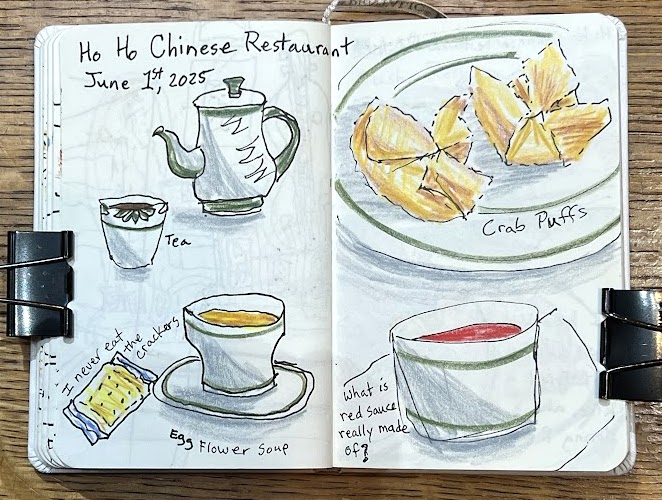 Ho Ho Chinese Restaurant
June 1st, 2025
Tea
I never eat
the crackers
Egg Flower Soup
Crab Puffs
What is
red sauce
really made
of?